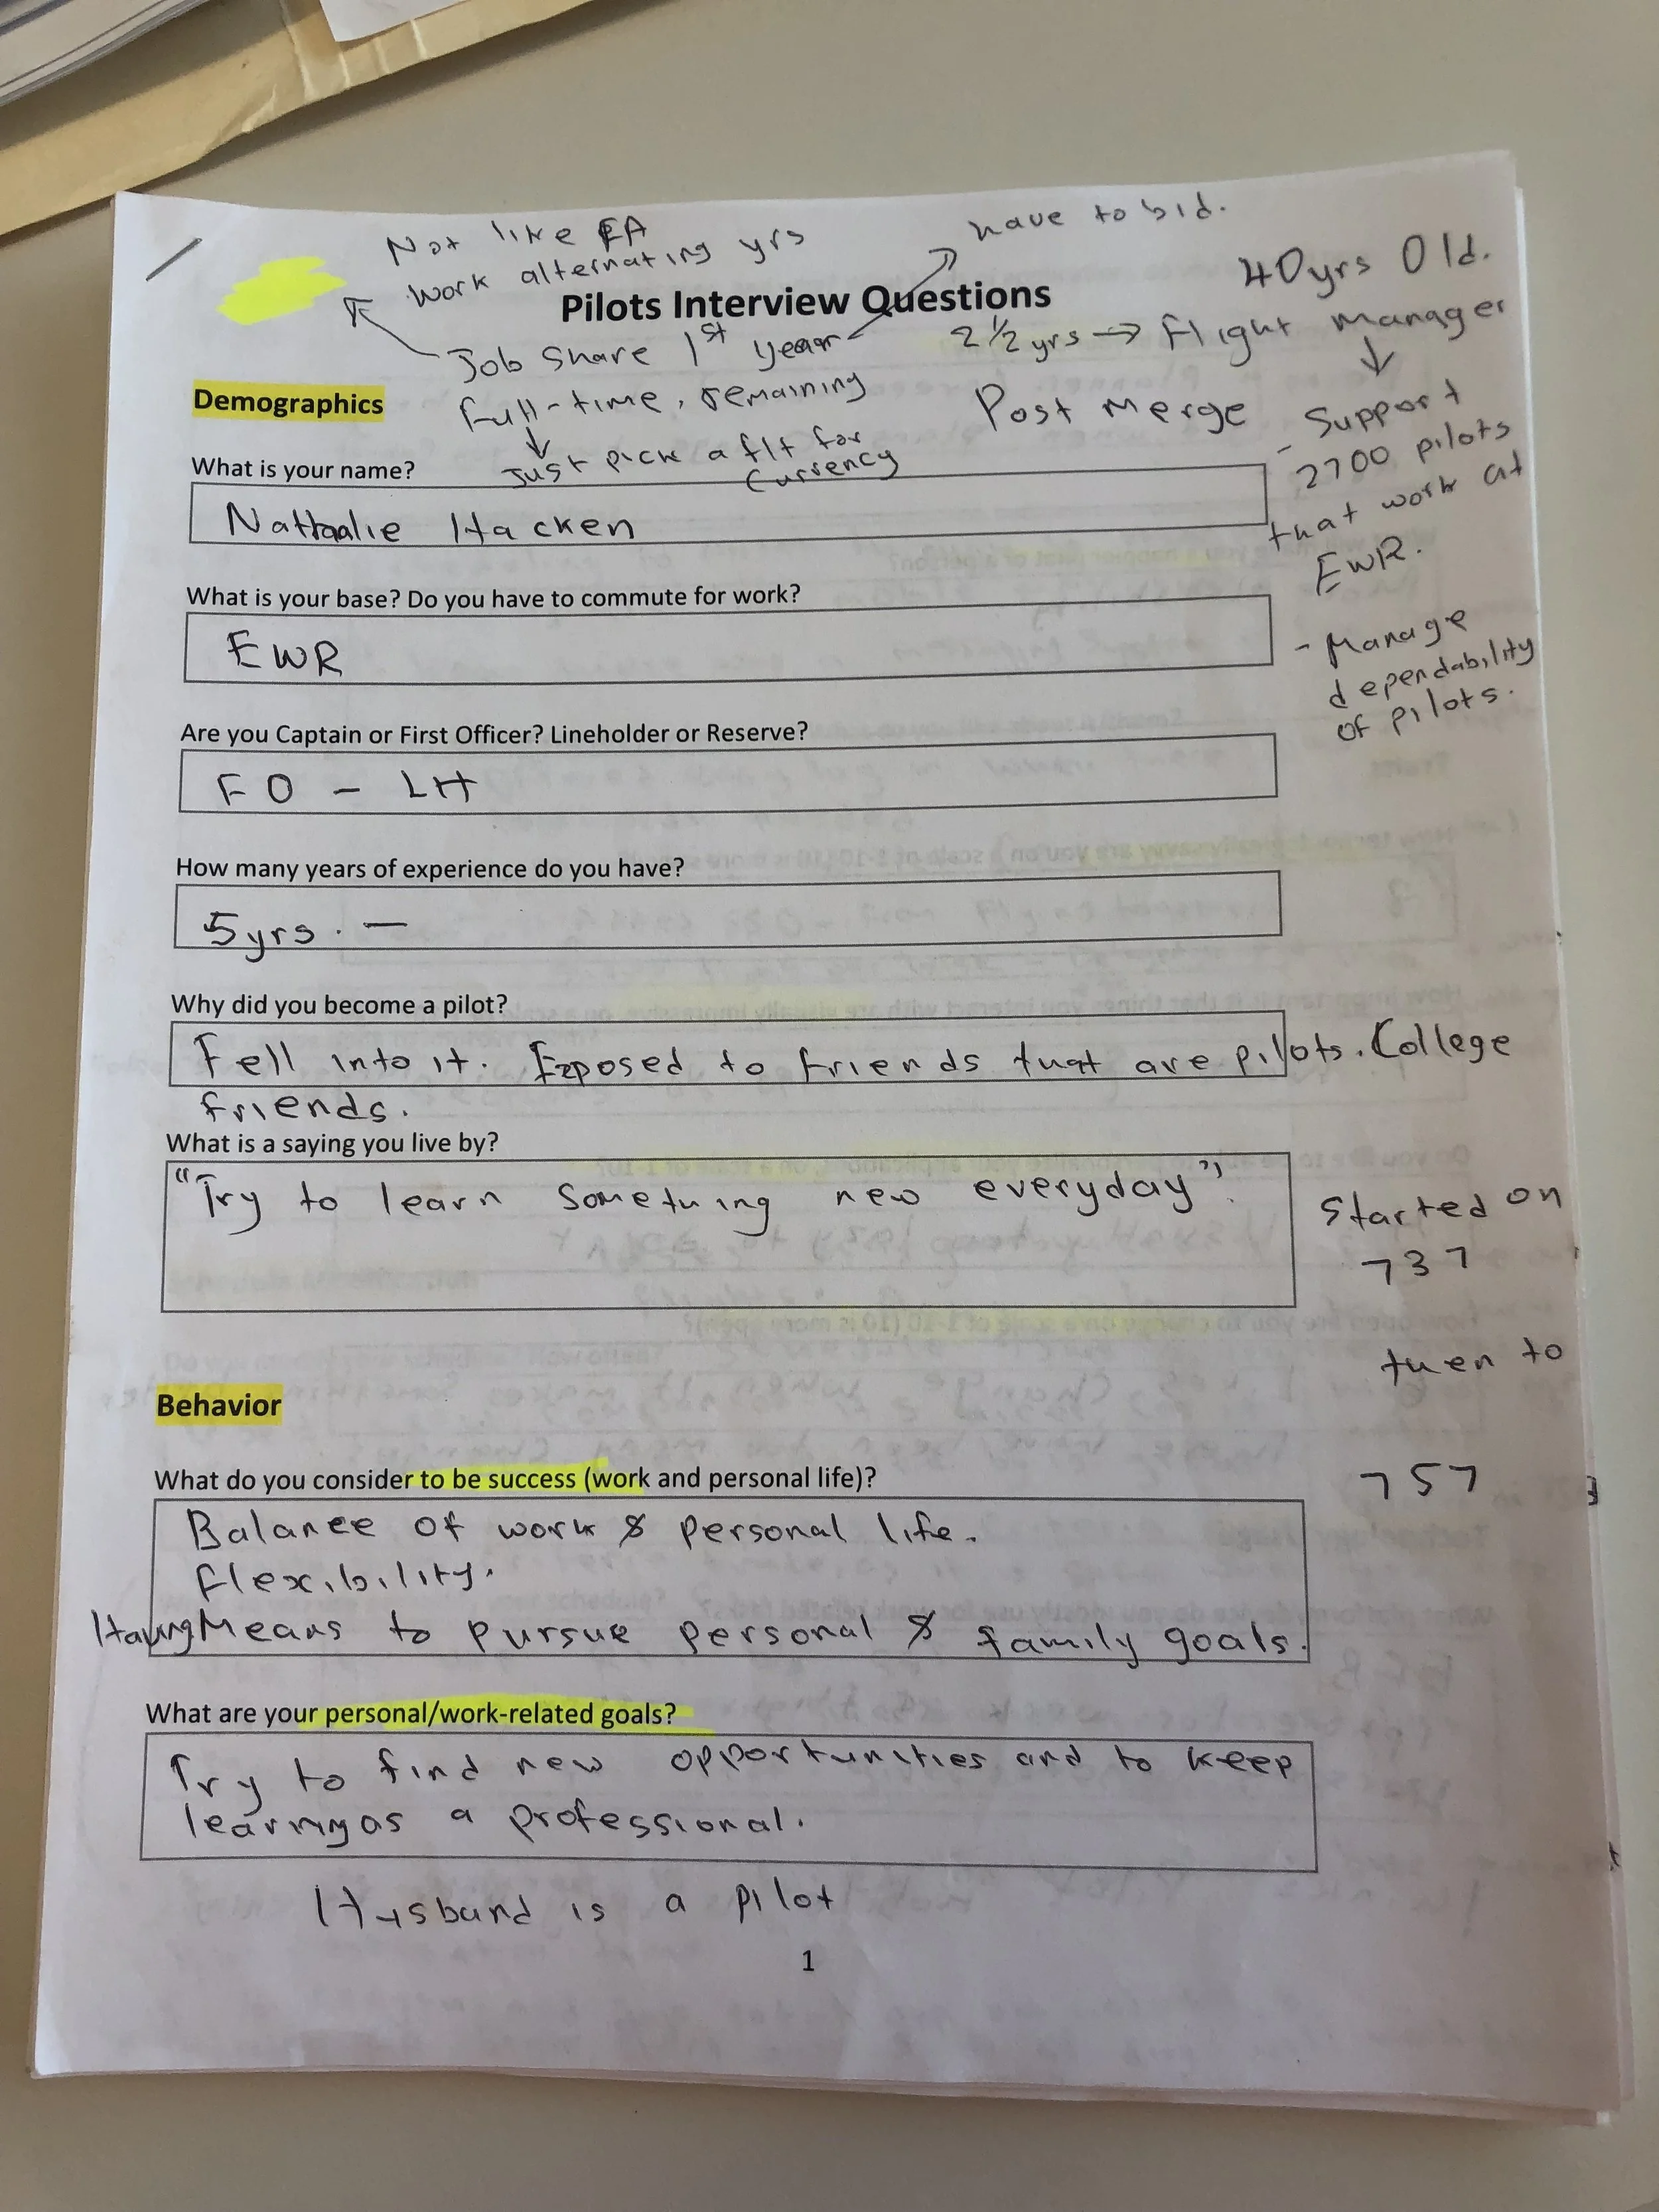 Not like FA
work alternating yrs
have to bid.
40yrs Old.
Pilots Interview Questions
Job Share 1st year
2 1/2 yrs → Flight Manager
full-time, remaining
Post Merge
Just pick a flt for
currency
- Support
2700 pilots
that work at
EWR.
- Manage
dependability
of pilots.
Demographics
What is your name?
Nathalie Hacken
What is your base? Do you have to commute for work?
EWR
Are you Captain or First Officer? Lineholder or Reserve?
FO - LH
How many years of experience do you have?
5yrs. —
Why did you become a pilot?
Fell into it. Exposed to friends that are pilots. College
friends.
What is a saying you live by?
"Try to learn something new everyday".
Started on
737
then to
757
Behavior
What do you consider to be success (work and personal life)?
Balance of work & personal life.
flexibility.
Having Means to pursue personal & family goals.
What are your personal/work-related goals?
Try to find new opportunities and to keep
learning as a professional.
Husband is a pilot
1